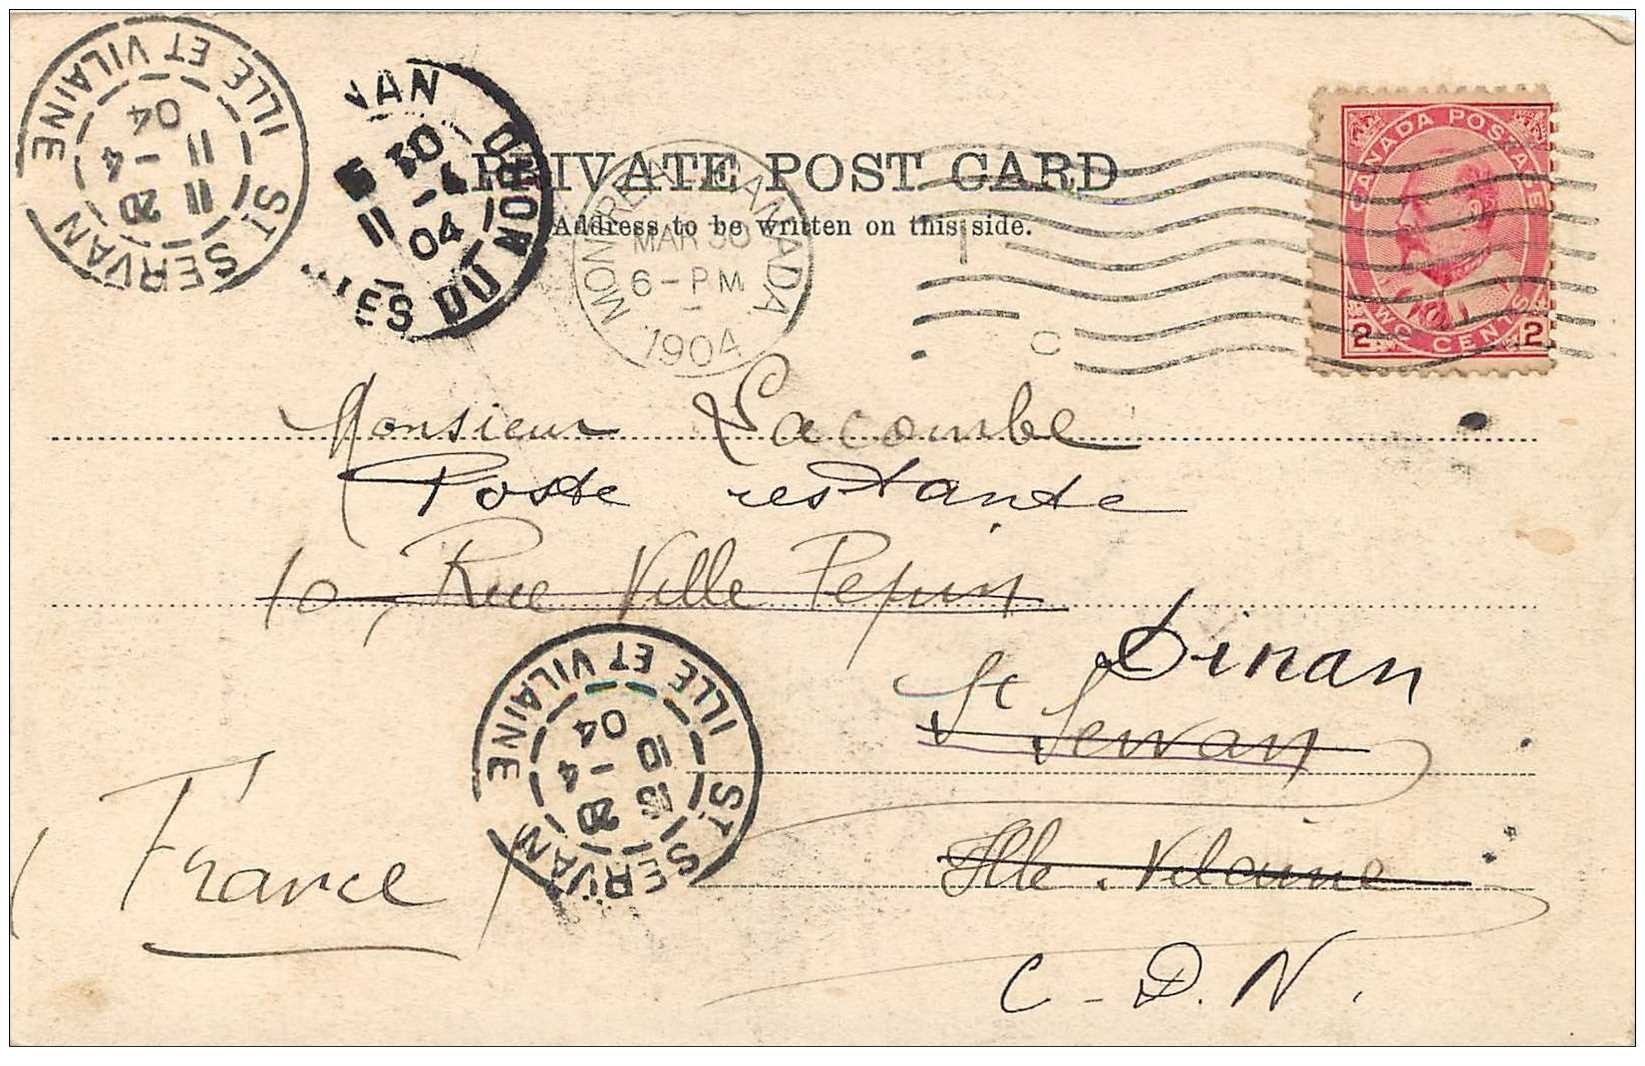 PRIVATE POST CARD
Address to be written on this side.
CANADA POSTAGE
2 TWO CENTS 2
MONTREAL CANADA
MAR 30
6 - PM
1904
ST SERVAN
ILLE ET VILAINE
11
20 - 4
04
NAN
30
- 4
11 04
TES DU NORD
Monsieur Lacombe
Poste restante
10, Rue Ville Pepin
Dinan
St Servan
Ille. Vilaine
C - D. N.
(France)
ST SERVAN
ILLE ET VILAINE
10
20 - 4
04